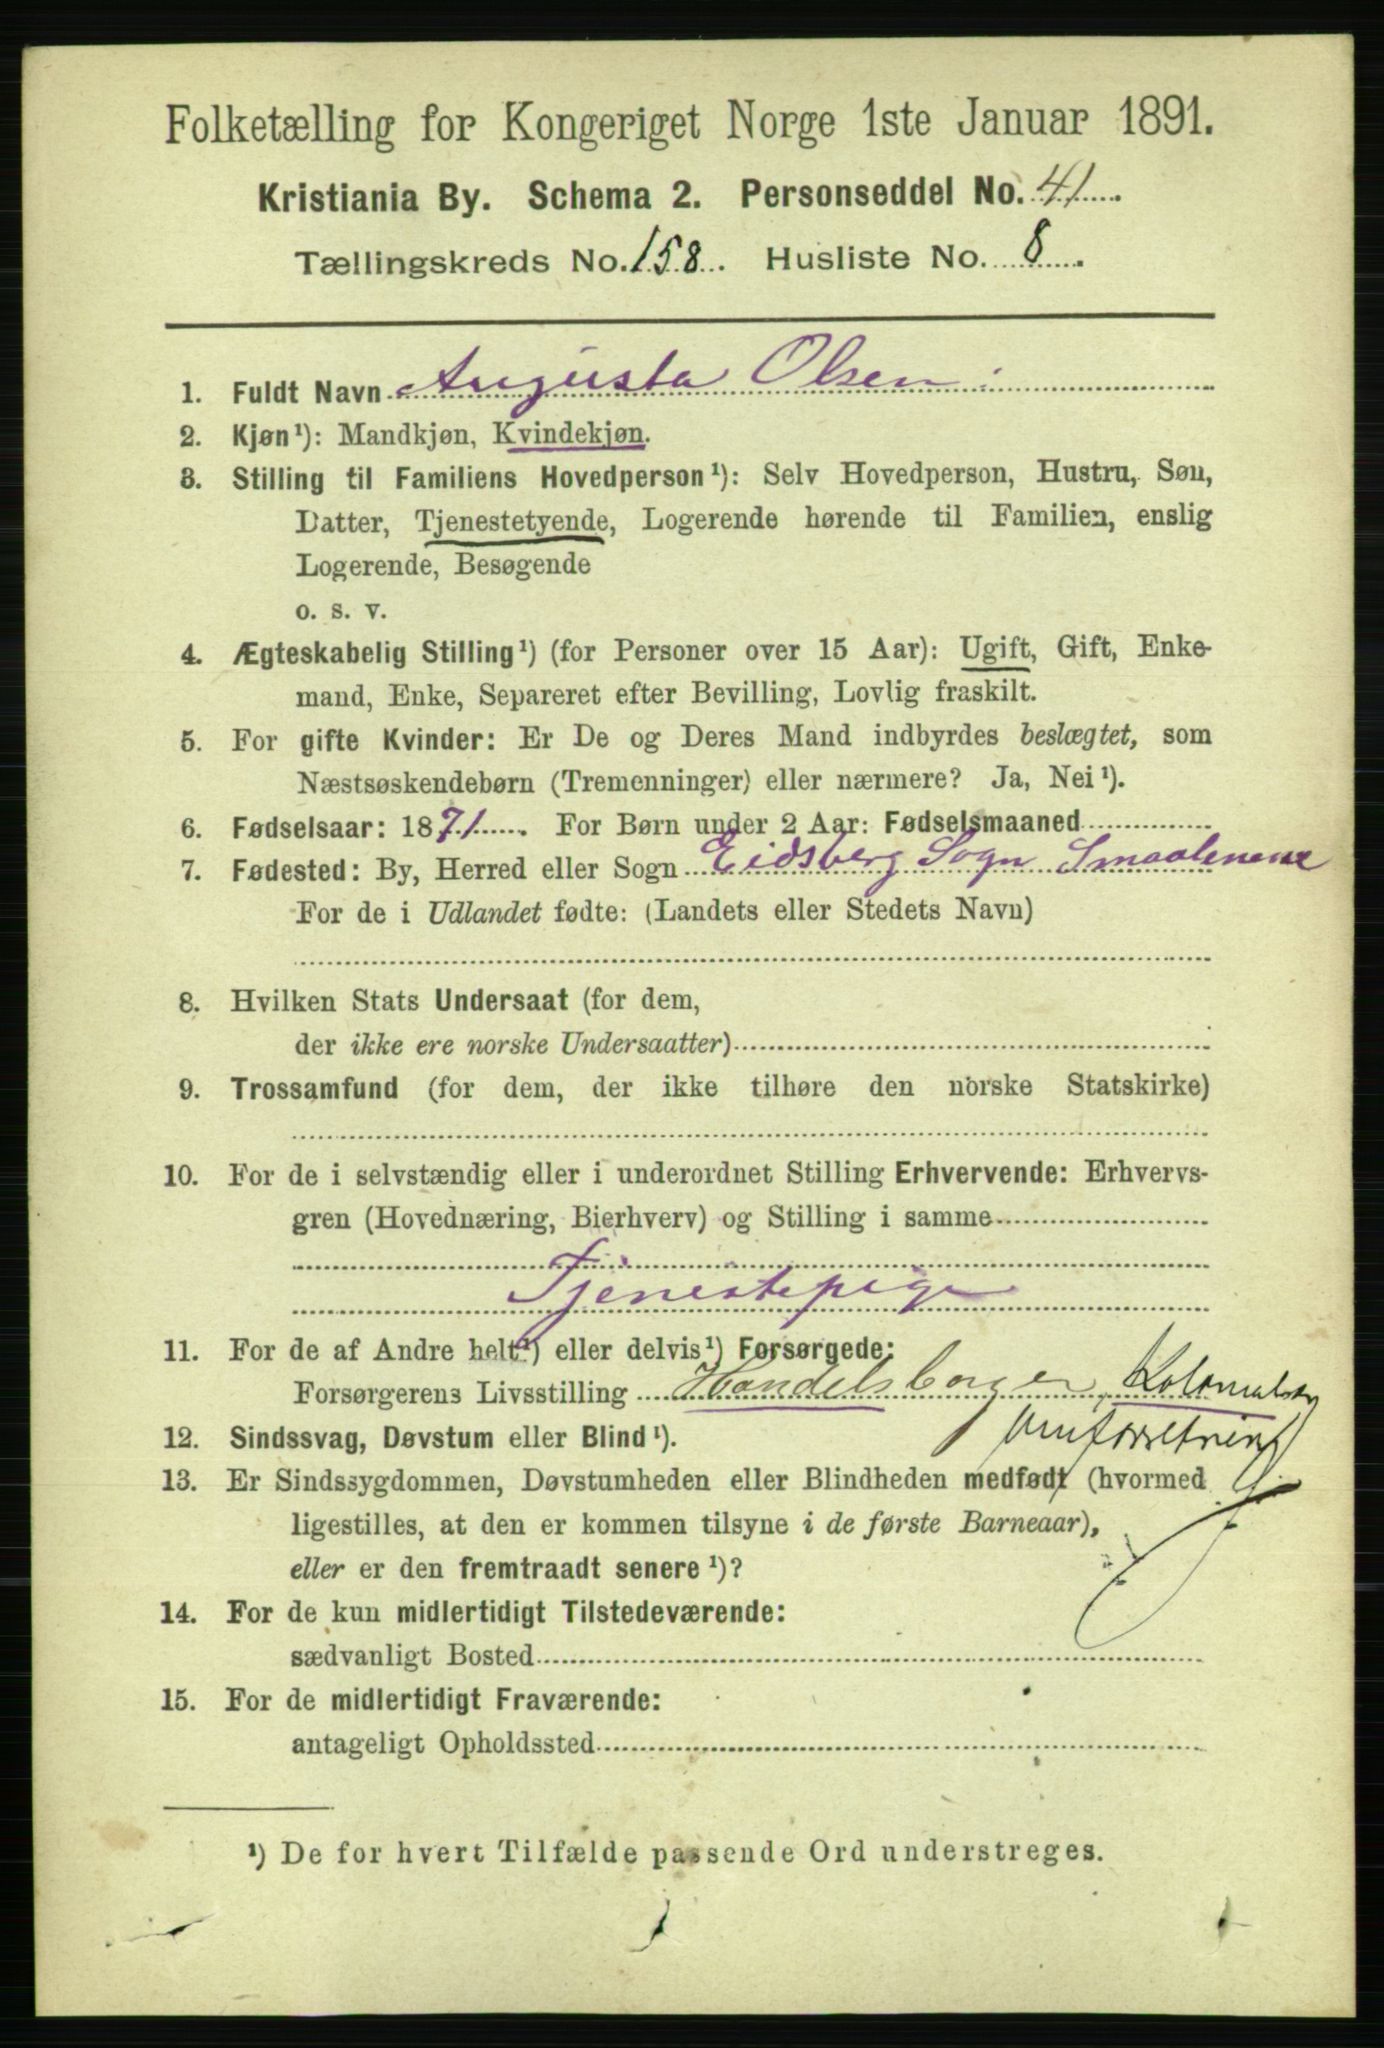 Folketælling for Kongeriget Norge 1ste Januar 1891.
Kristiania By. Schema 2. Personseddel No. 41
Tællingskreds No. 158. Husliste No. 8.
1. Fuldt Navn Augusta Olsen
2. Kjøn¹): Mandkjøn, Kvindekjøn.
3. Stilling til Familiens Hovedperson¹): Selv Hovedperson, Hustru, Søn,
Datter, Tjenestetyende, Logerende hørende til Familien, enslig
Logerende, Besøgende
o. s. v.
4. Ægteskabelig Stilling¹) (for Personer over 15 Aar): Ugift, Gift, Enke-
mand, Enke, Separeret efter Bevilling, Lovlig fraskilt.
5. For gifte Kvinder: Er De og Deres Mand indbyrdes beslægtet, som
Næstsøskendebørn (Tremenninger) eller nærmere? Ja, Nei¹).
6. Fødselsaar: 1871. For Børn under 2 Aar: Fødselsmaaned
7. Fødested: By, Herred eller Sogn Eidsberg Sogn Smaalenene
For de i Udlandet fødte: (Landets eller Stedets Navn)
8. Hvilken Stats Undersaat (for dem,
der ikke ere norske Undersaatter)
9. Trossamfund (for dem, der ikke tilhøre den norske Statskirke)
10. For de i selvstændig eller i underordnet Stilling Erhvervende: Erhvervs-
gren (Hovednæring, Bierhverv) og Stilling i samme
Tjenestepige
11. For de af Andre helt¹) eller delvis¹) Forsørgede:
Forsørgerens Livsstilling Handelsborger,
12. Sindssvag, Døvstum eller Blind¹).
13. Er Sindssygdommen, Døvstumheden eller Blindheden medfødt (hvormed
ligestilles, at den er kommen tilsyne i de første Barneaar),
eller er den fremtraadt senere¹)?
14. For de kun midlertidigt Tilstedeværende:
sædvanligt Bosted
15. For de midlertidigt Fraværende:
antageligt Opholdssted
¹) De for hvert Tilfælde passende Ord understreges.